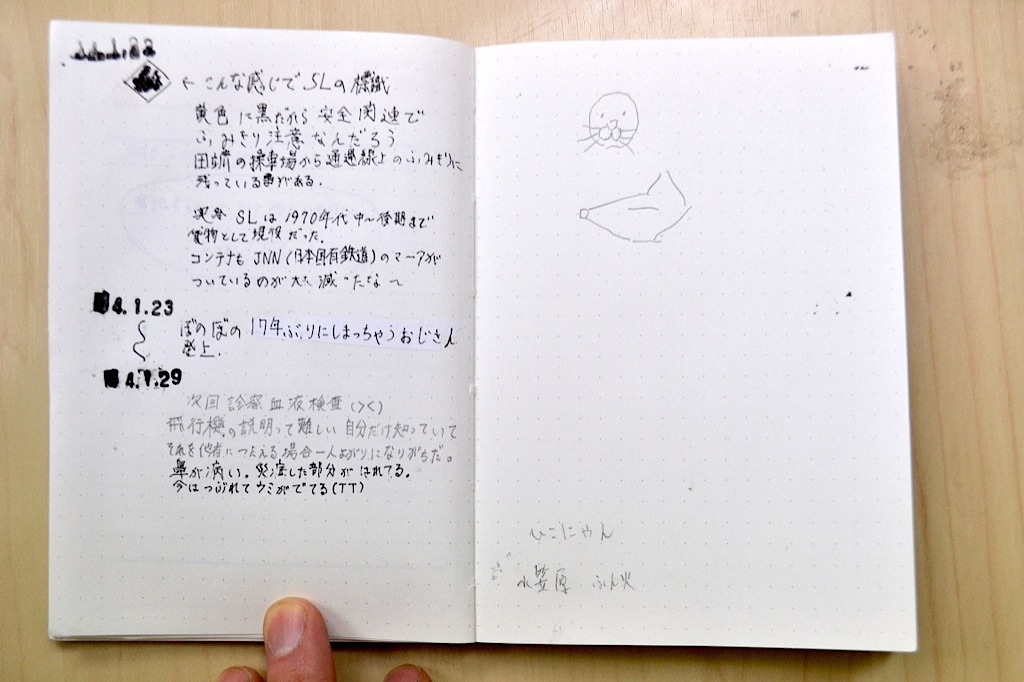 ←こんな感じでSLの標識
黄色に黒だから安全関連で
ふみきり注意なんだろう
の操車場から通過線上のふみきりに
残っている事がある.
実際 SLは1970年代中〜後期まで
貨物として現役だった.
コンテナも JNN(日本国有鉄道)のマークが
ついているのが大減ったな〜
4.1.23
ぼのぼの 17年ぶりにしまっちゃうおじさん
登上.
4.1.29
次回 診察 血液検査(><)
飛行機の説明って難しい 自分だけ知っていて
それを他者につたえる場合一人よがりになりがちだ。
鼻が痛い. した部分がはれてる.
今はつぶれてウミがでてる(TT)
ひこにゃん
笠原 ふん火